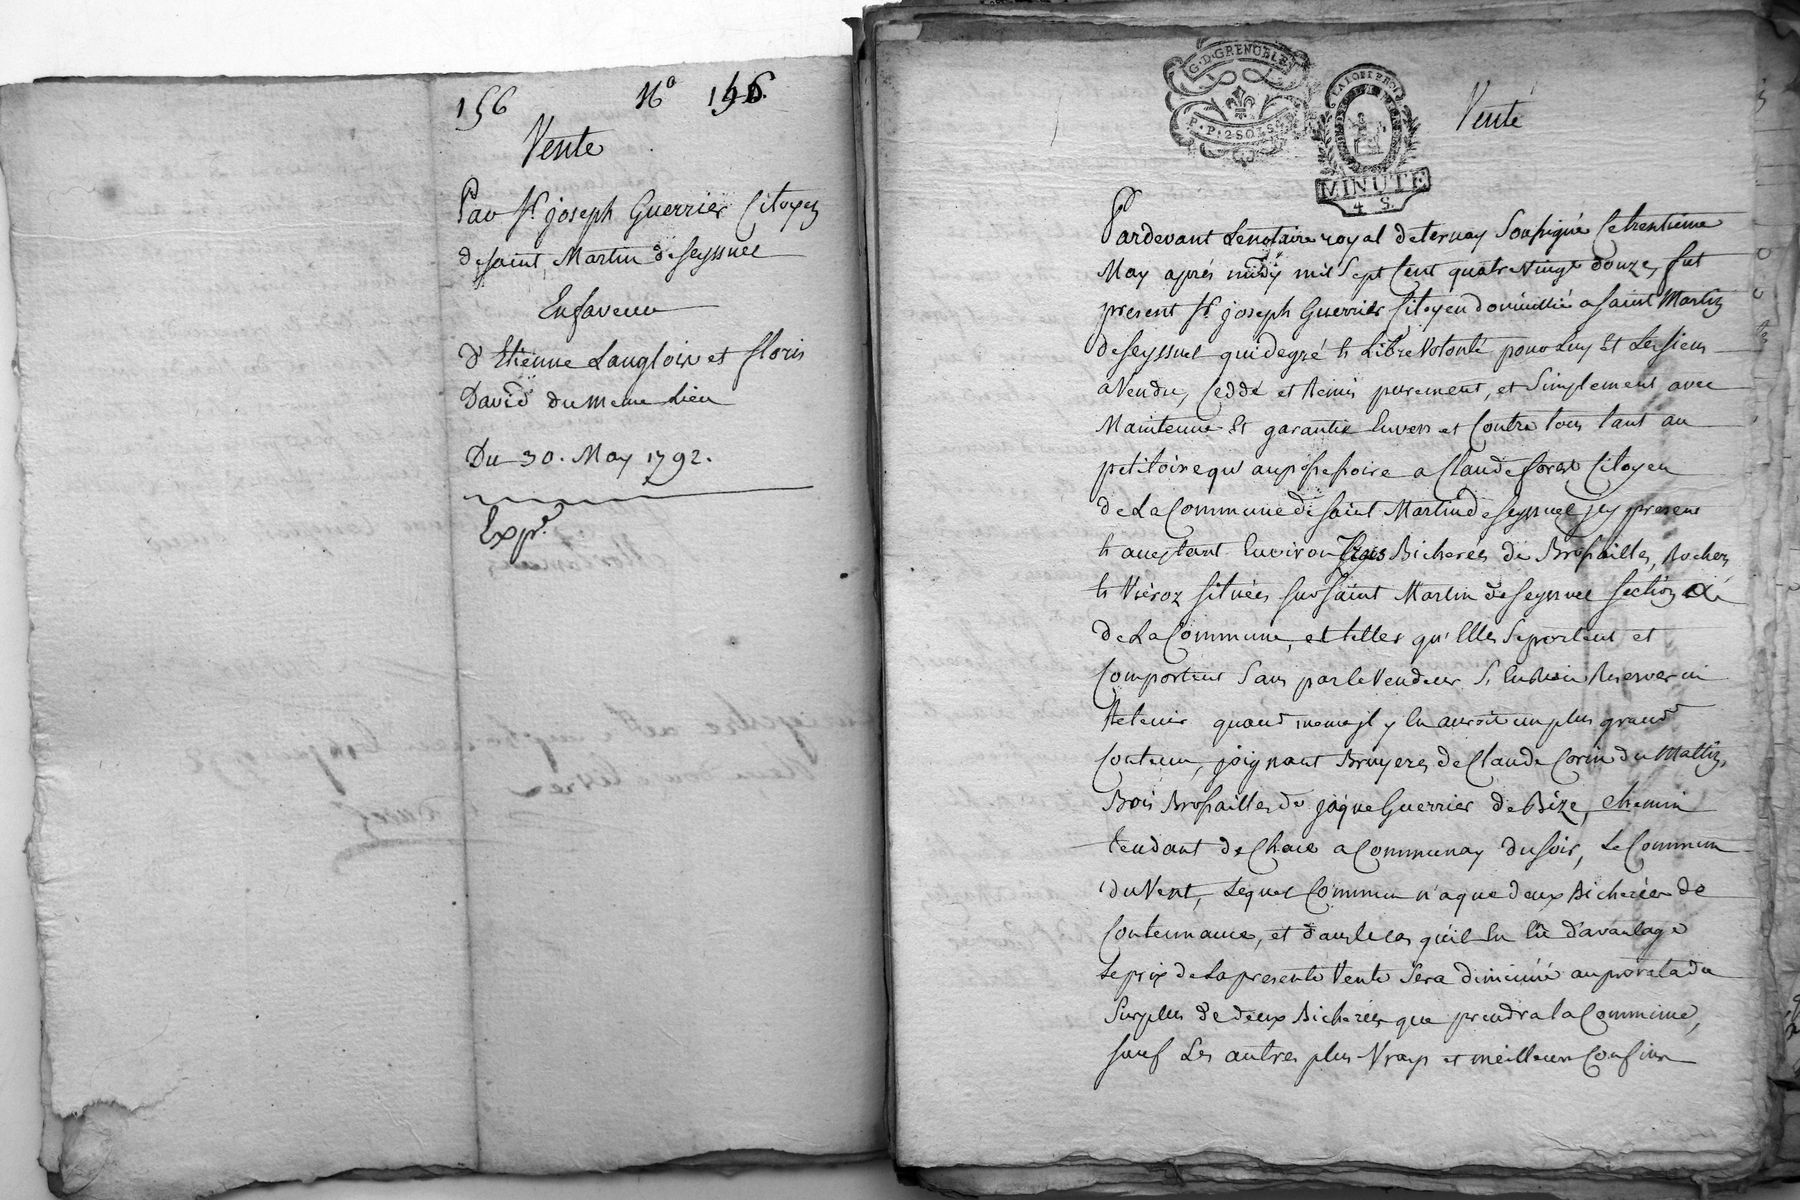 156 No 156.
Vente
Par Sr. joseph Guerrier Citoyen
de saint Martin de seyssuel
En faveur
d'Etienne Langloix et floris
David du meme Lieu
Du 30. May 1792.
Expé.
G. D. GRENOBLE
P. P. 2 SOLS
LA LOI ET LE ROI
MINUTE
4 S.
Vente
Pardevant Le notaire royal de ternay Soussigné Ce trentieme
May après midy mil Sept Cent quatre vingt douze, fut
present Sr. joseph Guerrier Citoyen domicillié a saint Martin
de seyssuel qui de gré & Libre Volonté pour Luy Et Les siens
a Vendu, Ceddé et Remis purement, et Simplement avec
Maintenue Et garantie Envers et Contre tous tant au
petitoire qu'au possessoire a Claude Citoyen
de La Commune de saint Martin de seyssuel jcy present
& acceptant Environ trois Bicherées de Brossailles, Rochers
& situées sur saint Martin de seyssuel section
de La Commune, et telles qu'Elles Se portent et
Comportent Sans par le Vendeur S'en Rien Reserver ni
Retenir quand meme jl y En auroit un plus grand
Contenu, joignant Bruyeres de Claude Corin du Mattin,
Bois Brossailles de jâque Guerrier de Bize, chemin
tendant de a Communay du soir, Le Commun
du Vent, Lequel Commun n'a que deux Bicherées de
Contenance, et dans le cas qu'il En eû d'avantage
Le prix de La presente Vente Sera diminué au prorata du
Surplus de deux Bicherées que prendra la Commune,
sauf Les autres plus Vrays et meilleurs Confins